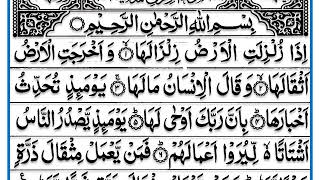 بِسْمِ اللهِ الرَّحْمٰنِ الرَّحِيْمِ
اِذَا زُلْزِلَتِ الْاَرْضُ زِلْزَالَهَا ۙ۝۱ وَ اَخْرَجَتِ الْاَرْضُ
اَثْقَالَهَا ۙ۝۲ وَ قَالَ الْاِنْسَانُ مَا لَهَا ۚ۝۳ يَوْمَئِذٍ تُحَدِّثُ
اَخْبَارَهَا ۙ۝۴ بِاَنَّ رَبَّكَ اَوْحٰى لَهَا ۙ۝۵ يَوْمَئِذٍ يَّصْدُرُ النَّاسُ
اَشْتَاتًا ۙ لِّيُرَوْا اَعْمَالَهُمْ ۙ۝۶ فَمَنْ يَّعْمَلْ مِثْقَالَ ذَرَّةٍ